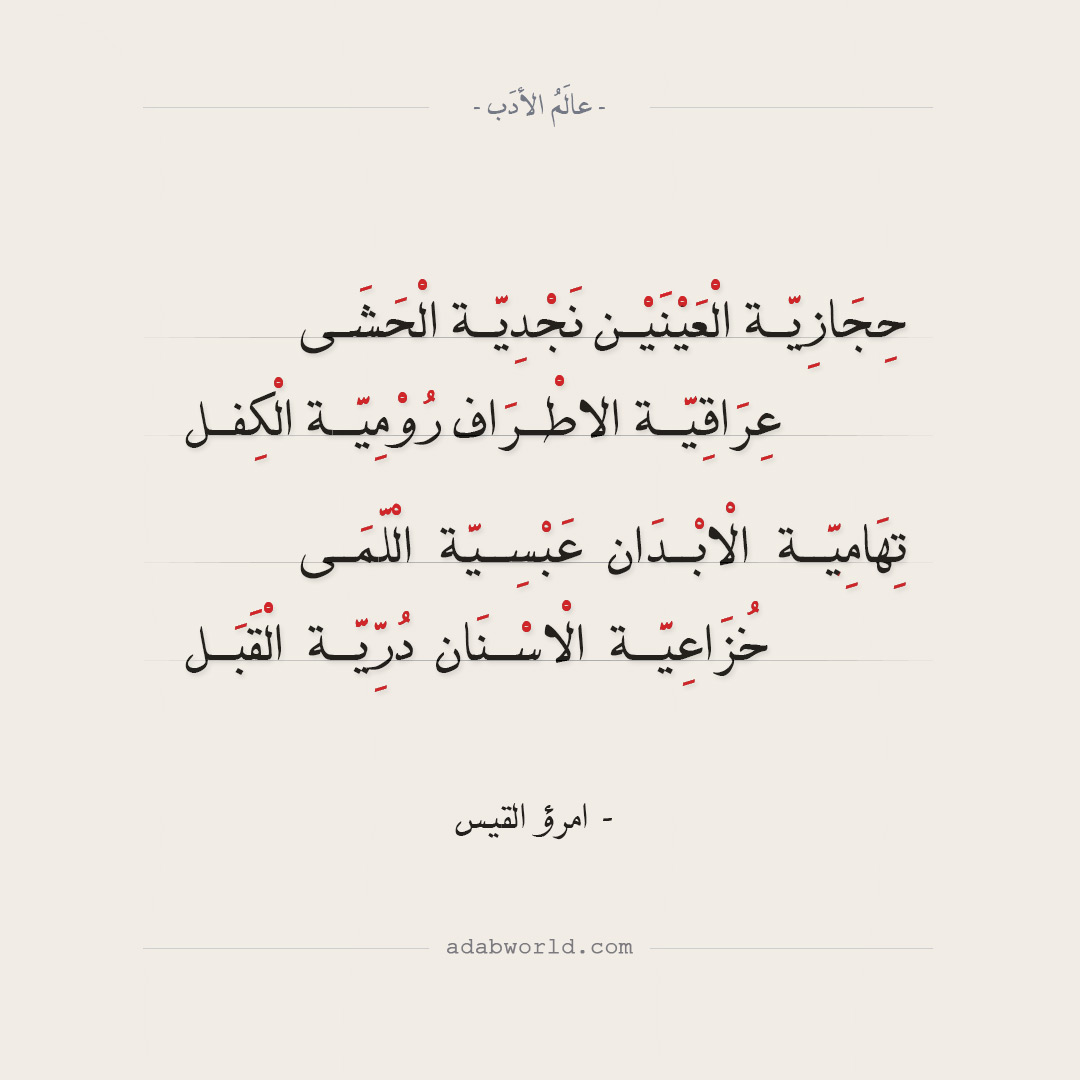 - عالَمُ الأدَب -
حِجَازِيّـة الْعَيْنَيْـن نَجْدِيّـة الْحَشَـى
عِرَاقِيّـة الاطْـرَاف رُوْمِيّـة الْكِفـل
تِهَامِيّـة الْابْـدَان عَبْسِـيّة الْلّمَـى
خُزَاعِيّـة الْاسْـنَان دُرِّيّـة الْقَبَـل
- امرؤ القيس
adabworld.com